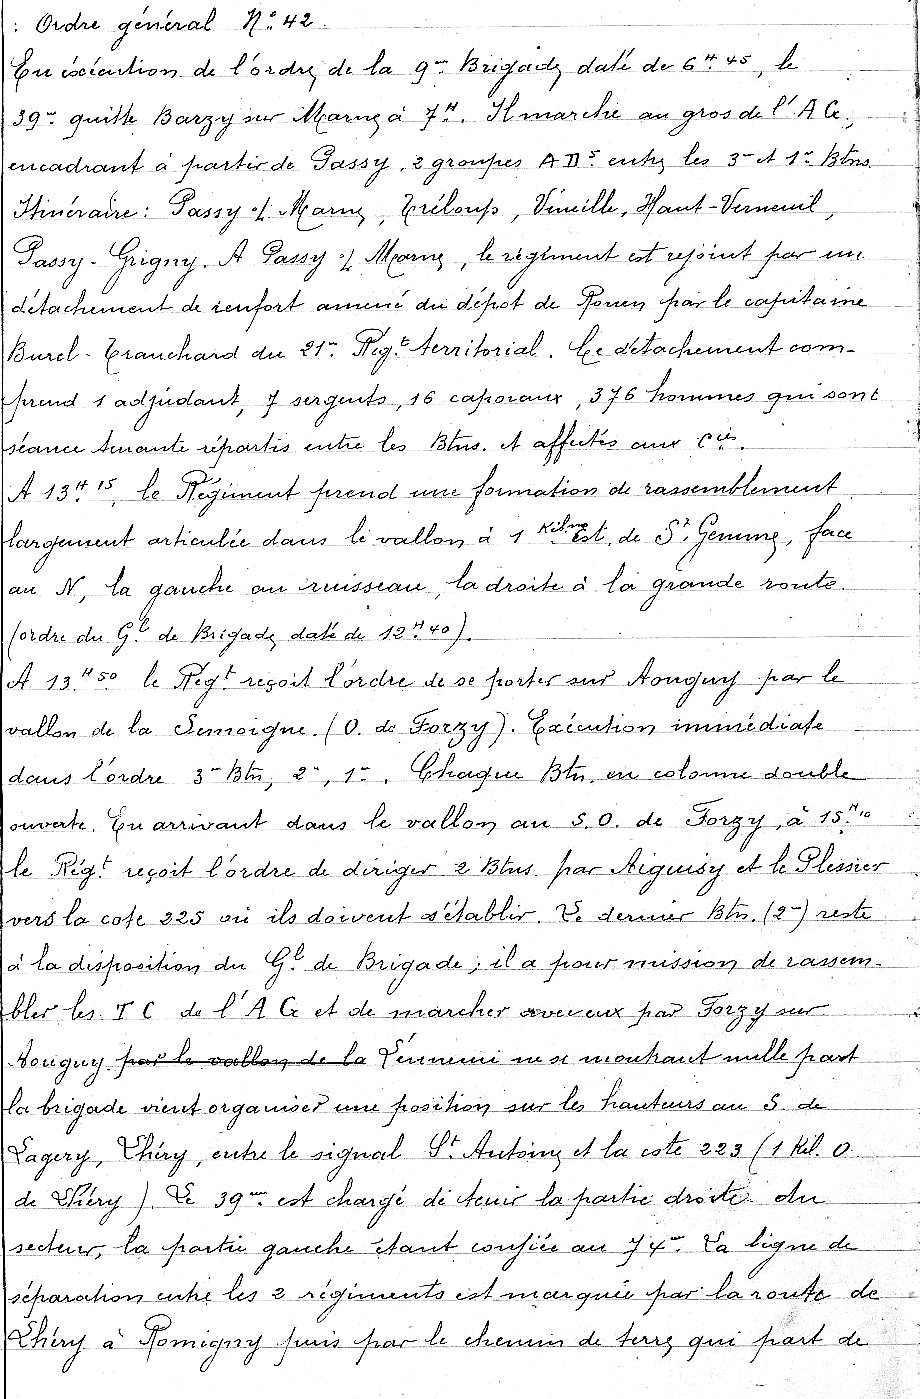 : Ordre général N° 42.
En éxécution de l'ordre de la 9me Brigade daté de 6H45, le
39me quitte Barzy sur Marne à 7H. Il marche au gros de l'A G.,
encadrant à partir de Passy, 2 groupes A Ds entre les 3me et 1er Btns
Itinéraire : Passy s/ Marne, Tréloup, Vincille, Haut-Verneuil,
Passy-Grigny. A Passy s/ Marne, le régiment est rejoint par un
détachement de renfort amené du dépot de Rouen par le capitaine
Burel-Tranchard du 21me Régt territorial. Ce détachement com-
prend 1 adjudant, 7 sergents, 16 caporaux, 376 hommes qui sont
séance tenante répartis entre les Btns. et affectés aux Cies.
A 13H15, le Régiment prend une formation de rassemblement
largement articulée dans le vallon à 1 Kilme Est de St Gemme, face
au N, la gauche au ruisseau, la droite à la grande route.
(ordre du Gl de Brigade daté de 12H40).
A 13H50 le Régt reçoit l'ordre de se porter sur Aougny par le
vallon de la Semoigne. (O. de Forzy). Exécution immédiate
dans l'ordre 3me Btn, 2me, 1er. Chaque Btn. en colonne double
ouverte. En arrivant dans le vallon au S.O. de Forzy, à 15H10
le Régt reçoit l'ordre de diriger 2 Btns par Aiguisy et le Plessier
vers la cote 225 où ils doivent s'établir. Le dernier Btn. (2me) reste
à la disposition du Gl de Brigade ; il a pour mission de rassem-
bler les T C de l'A G et de marcher avec eux par Forzy sur
Aougny par le vallon de la L'ennemi ne se montrant nulle part
la brigade vient organiser une position sur les hauteurs au S. de
Lagery, Lhéry, entre le signal St Antoine et la cote 223 (1 Kil. O
de Lhéry). Le 39me est chargé de tenir la partie droite du
secteur, la partie gauche étant confiée au 74me. La ligne de
séparation entre les 2 régiments est marquée par la route de
Lhéry à Romigny puis par le chemin de terre qui part de